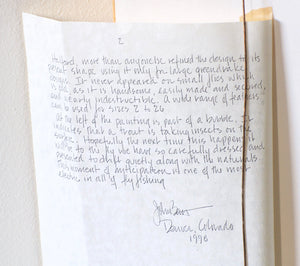 2
Halford, more than anyone else refined the design to its
present shape using it only for large green drake
design. It never appeared on small flies which
is odd, as it is handsome, easily made and secured,
and nearly indestructible. A wide range of feathers
can be used for sizes 2 to 26
Up to left of the painting is part of a bubble. It
indicates that a trout is taking insects on the
surface. Hopefully the next time this happens it
will be to the fly we have so carefully dressed and
presented to drift quietly along with the naturals.
This moment of anticipation is one of the most
in all of fly fishing
Denver, Colorado
1990